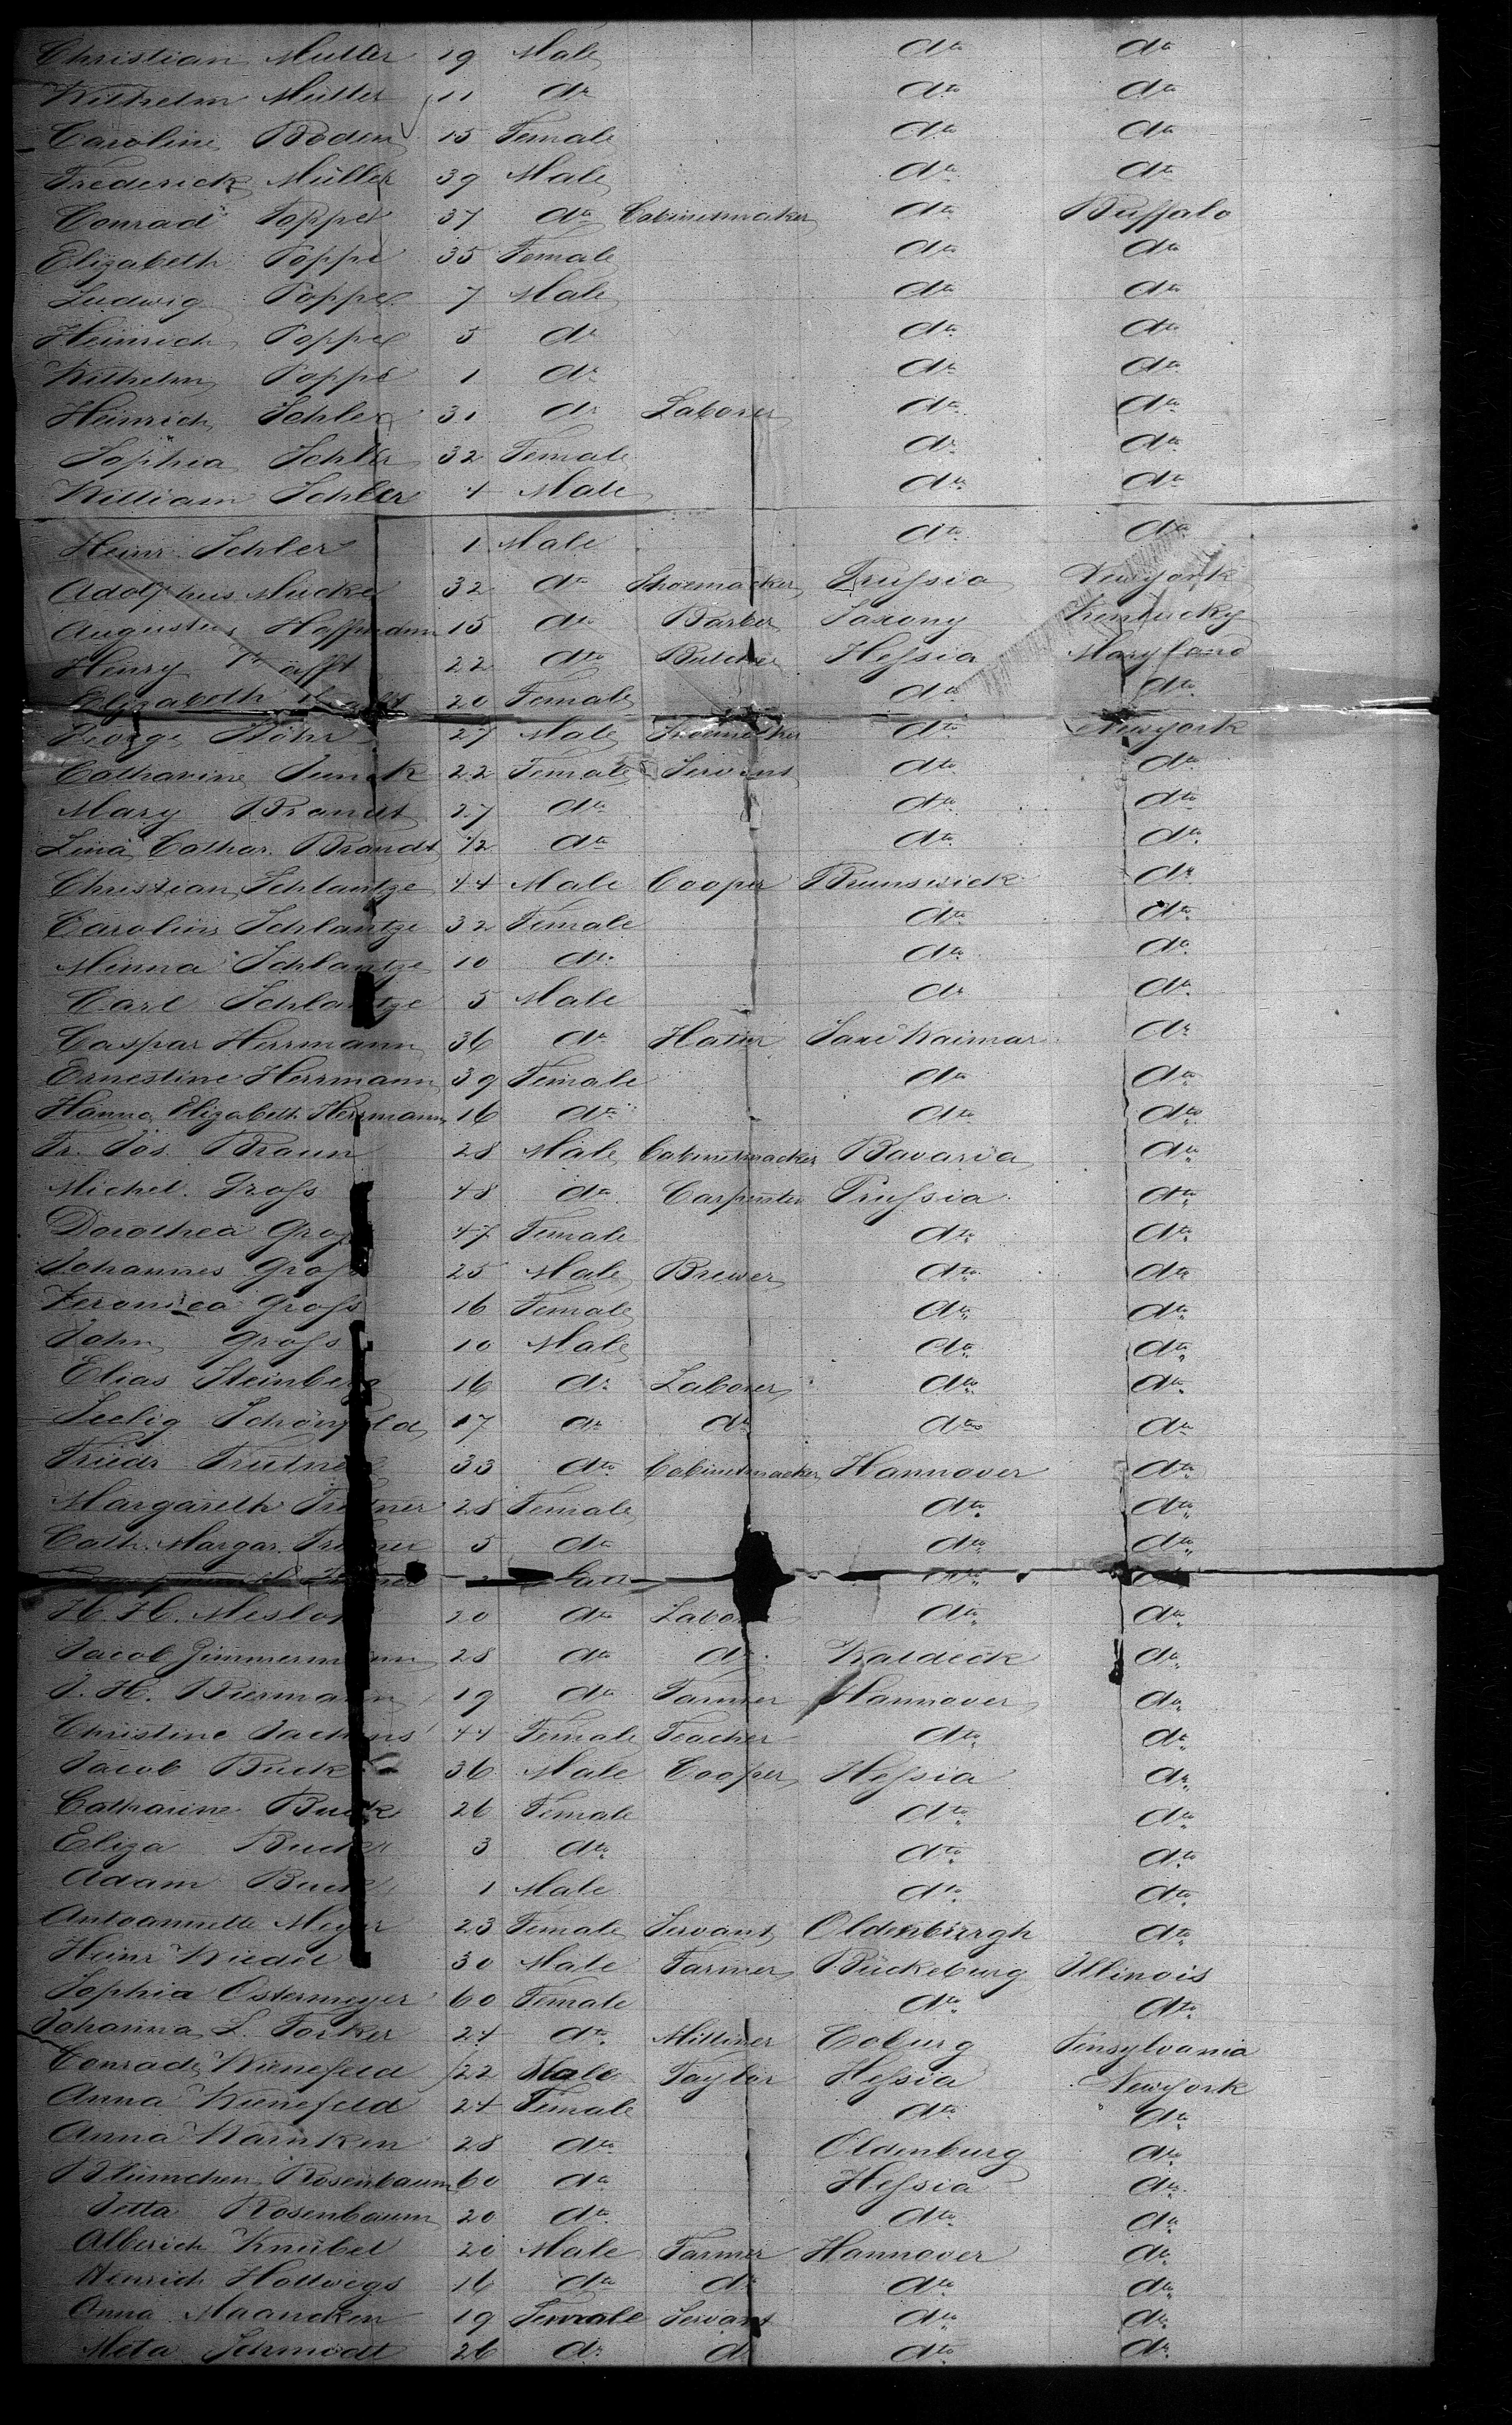 Christian Müller 19 Male dto dto
Wilhelm Müller 11 do dto dto
Caroline Boden 15 Female dto dto
Frederick Müller 39 Male dto dto
Conrad Poppe 37 do Cabinetmaker dto Buffalo
Elizabeth Poppe 35 Female dto dto
Ludwig Poppe 7 Male dto dto
Heinrich Poppe 5 do dto dto
Wilhelm Poppe 1 do dto dto
Heinrich Schler 31 do Laborer dto dto
Sophia Schler 32 Female do dto
William Schler 4 Male dto dto
Heinr. Schler 1 Male dto dto
Adolphus Mücke 32 do Shoemacker Prussia Newyork
Augustus Hoffmann 15 do Barber Saxony Kentucky
Henry 22 dto Butcher Hessia Maryland
Elizabeth 20 Female dto dto
George Höhr 27 Male Shoemacker dto Newyork
Catharine Junck 22 Female Servant dto dto
Mary Brandt 27 dto dto dto
Lina Cathar. Brandt 1/2 dto dto dto
Christian Schlantze 44 Male Cooper Brunswick do
Carolina Schlantze 32 Female dto dto
Minna Schlantze 10 do dto do
Carl Schlantze 5 Male do do
Caspar Herrmann 36 do Hatter Saxe Waimar do
Ernestine Herrmann 39 Female dto dto
Hanna Elizabeth Herrmann 16 dto dto dto
Fr. Jos. Braun 28 Male Cabinetmacker Bavaria dto
Michel. Gross 48 do Carpenter Prussia dto
Dorothea Gross 47 Female dto dto
Johannes Gross 25 Male Brewer dto dto
Veronica Gross 16 Female dto dto
John Gross 10 Male dto dto
Elias Steinberg 16 do Laborer dto dto
Seelig Schönfeld 17 do do dto do
Friedr Trutner 33 dto Cabinetmacker Hannover dto
Margareth Trutner 28 Female dto dto
Cath. Margar. Trutner 5 do dto dto
H. H. Meslo 20 do Laborer dto do
Jacob Zimmermann 28 do do Waldeck do
J. H. Biermann 19 do Farmer Hannover do
Christine 44 Female Teacher dto do
Jacob Buck 36 Male Cooper Hessia do
Catharine Buck 26 Female dto do
Eliza Buck 3 dto dto dto
Adam Buck 1 Male dto dto
Antoannette Meyer 23 Female Servant Oldenburgh dto
Heinr Riedel 30 Male Farmer Bückeburg Illinois
Sophia Ostermeyer 60 Female dto dto
Johanna L. Forker 24 dto Milliner Coburg Pensylvania
Conrad Wienefeld 22 Male Taylor Hessia Newyork
Anna Wienefeld 24 Female dto do
Anna Warnken 28 dto Oldenburg dto
Blümchen Rosenbaum 60 do Hessia do
Jetta Rosenbaum 20 dto dto do
Alberich Knübel 20 Male Farmer Hannover do
Henrich Hollwegs 16 do do dto do
Anna Maancken 19 Female Servant dto do
Meta Schmidt 26 do do dto do